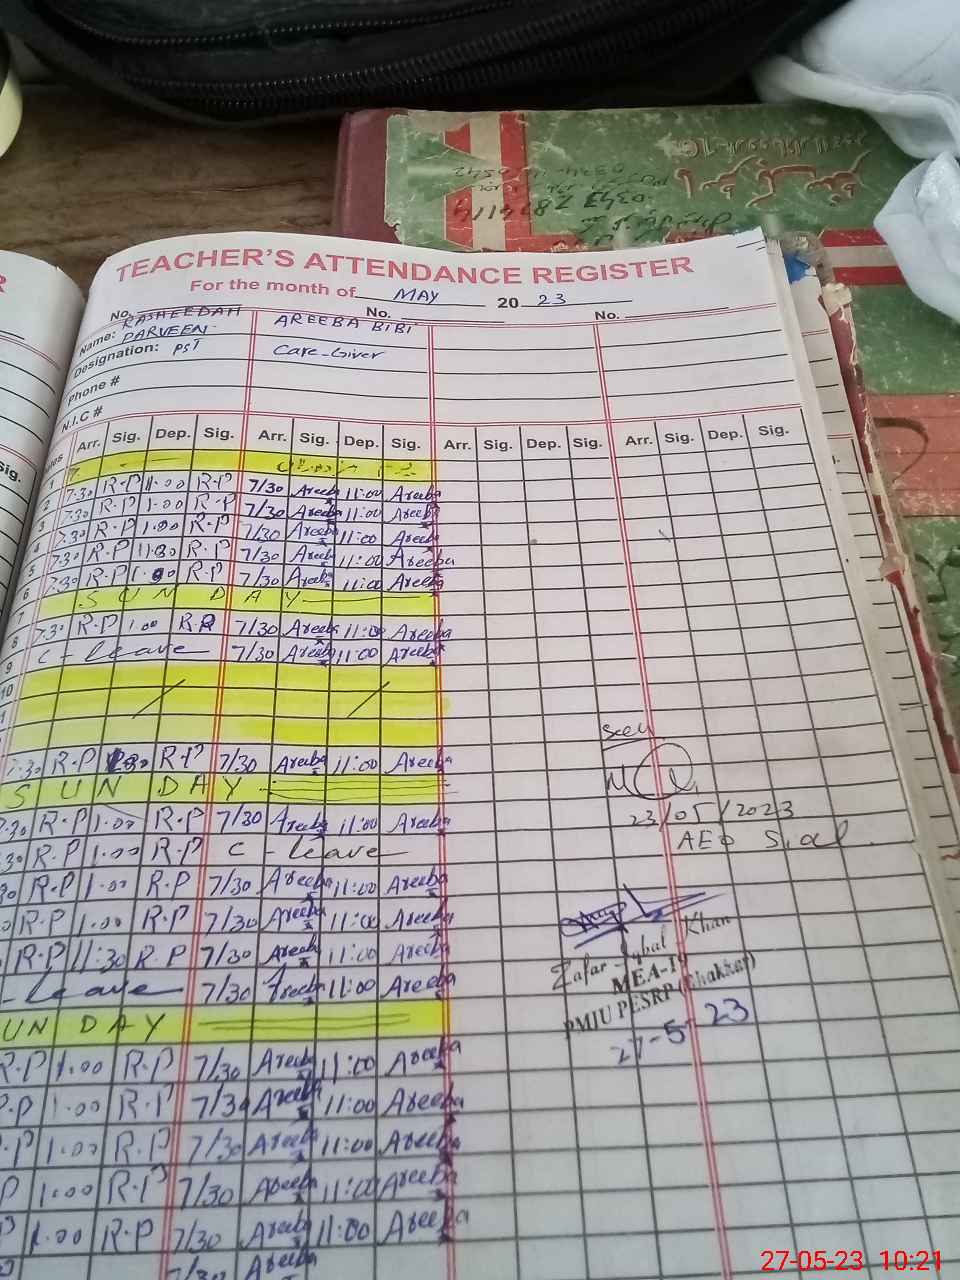 0343 7874114
TEACHER'S ATTENDANCE REGISTER
For the month of MAY 20 23
No. No. No.
Name: RASHEEDAH PARVEEN AREEBA BIBI
Designation: PST Care-Giver
Phone #
N.I.C #
Arr. Sig. Dep. Sig. Arr. Sig. Dep. Sig. Arr. Sig. Dep. Sig. Arr. Sig. Dep. Sig.
Sig.
1
2 7:30 R-P 11:00 R-P 7/30 Areeba 11:00 Areeba
3 7:30 R-P 1:00 R-P 7/30 Areeba 11:00 Areeba
4 7:30 R-P 1:00 R-P 7/30 Areeba 11:00 Areeba
5 7:30 R-P 11:30 R-P 7/30 Areeba 11:00 Areeba
6 7:30 R-P R-P 7/30 Areeba 11:00 Areeba
7 SUNDAY
8 7:30 R-P 1:00 R-P 7/30 Areeba 11:00 Areeba
9 C-leave 7/30 Areeba 11:00 Areeba
10
7:30 R-P R-P 7/30 Areeba 11:00 Areeba
SUNDAY
7:30 R-P 1:00 R-P 7/30 Areeba 11:00 Areeba
30 R-P 1:00 R-P C-leave
30 R-P 1:00 R-P 7/30 Areeba 11:00 Areeba
R-P 1:00 R-P 7/30 Areeba 11:00 Areeba
R-P 11:30 R-P 7/30 Areeba 11:00 Areeba
-leave 7/30 Areeba 11:00 Areeba
UNDAY
R-P 1:00 R-P 7/30 Areeba 11:00 Areeba
R-P 1:00 R-P 7/30 Areeba 11:00 Areeba
P 1:00 R-P 7/30 Areeba 11:00 Areeba
P 1:00 R-P 7/30 Areeba 11:00 Areeba
1:00 R-P 7/30 Areeba 11:00 Areeba
7/30 Areeba
Seen
23/05/2023
AEO Sial
Zafar Iqbal Khan
MEA-19
PMIU PESRP (Bhakkar)
27-5-23
27-05-23 10:21